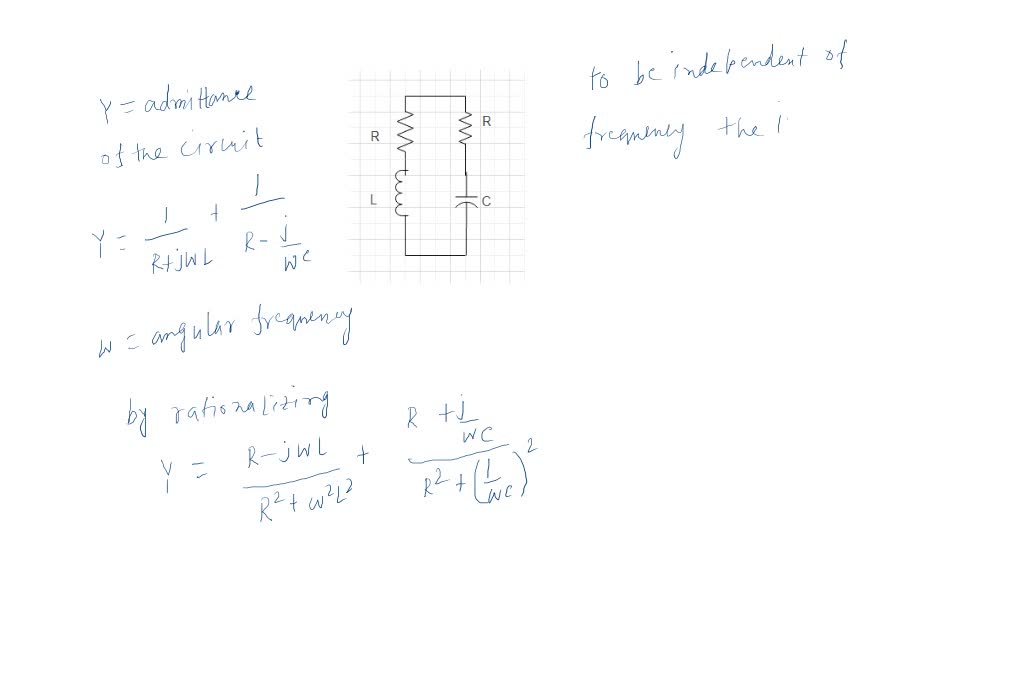 Y = admittance
of the circuit
Y = 1/(R+jWL) + 1/(R - j/WC)
W = angular frequency
by rationalizing
Y = (R-jWL)/(R²+W²L²) + (R + j/WC)/(R² + (1/WC)²)
R
R
L
C
to be independent of
frequency the i